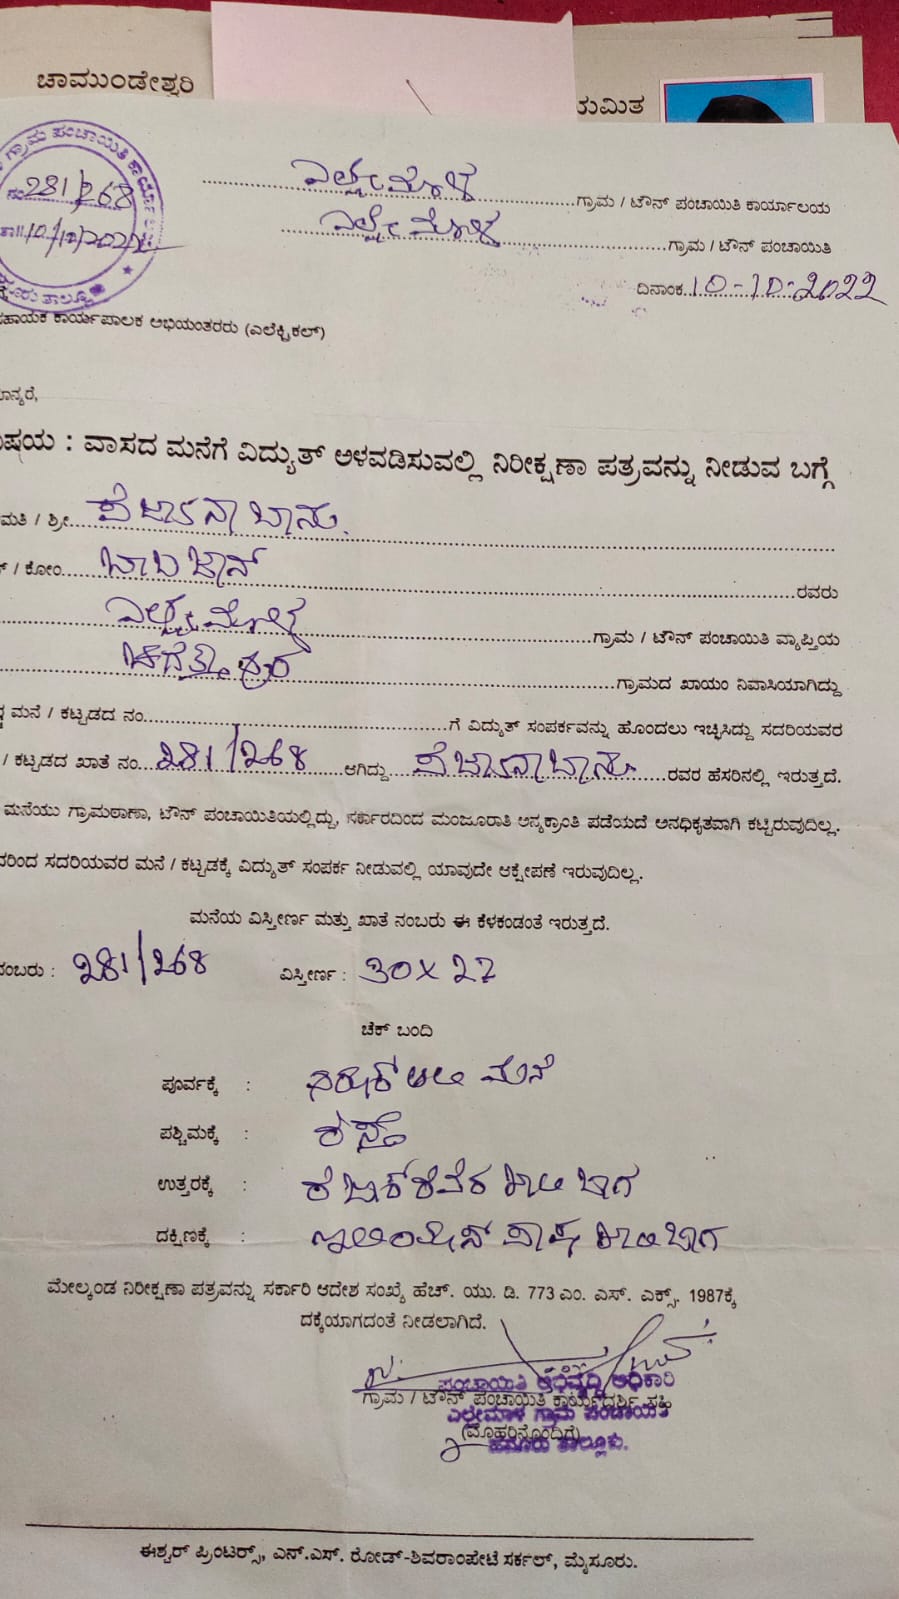 ಚಾಮುಂಡೇಶ್ವರಿ
ಯಮಿತ
ಗ್ರಾಮ ಪಂಚಾಯಿತಿ
ನಂ 281/268
ಎಲ್ಲೇಮಾಳ ಗ್ರಾಮ / ಟೌನ್ ಪಂಚಾಯಿತಿ ಕಾರ್ಯಾಲಯ
ಎಲ್ಲೇಮಾಳ ಗ್ರಾಮ / ಟೌನ್ ಪಂಚಾಯಿತಿ
ದಿನಾಂಕ 10-10-2022
ಕಾರ್ಯಪಾಲಕ ಅಭಿಯಂತರರು (ಎಲೆಕ್ಟ್ರಿಕಲ್)
ನ್ಯರೆ,
ಷಯ : ವಾಸದ ಮನೆಗೆ ವಿದ್ಯುತ್ ಅಳವಡಿಸುವಲ್ಲಿ ನಿರೀಕ್ಷಣಾ ಪತ್ರವನ್ನು ನೀಡುವ ಬಗ್ಗೆ
ಮತಿ / ಶ್ರೀ ಬಾನು
/ ಕೋಂ ಬಾಬಜಾನ್ ರವರು
ಎಲ್ಲೇಮಾಳ ಗ್ರಾಮ / ಟೌನ್ ಪಂಚಾಯಿತಿ ವ್ಯಾಪ್ತಿಯ
ಗ್ರಾಮದ ಖಾಯಂ ನಿವಾಸಿಯಾಗಿದ್ದು
ಮನೆ / ಕಟ್ಟಡದ ನಂ. ಗೆ ವಿದ್ಯುತ್ ಸಂಪರ್ಕವನ್ನು ಹೊಂದಲು ಇಚ್ಛಿಸಿದ್ದು ಸದರಿಯವರ
/ ಕಟ್ಟಡದ ಖಾತೆ ನಂ. 281/268 ಆಗಿದ್ದು ಬಾನು ರವರ ಹೆಸರಿನಲ್ಲಿ ಇರುತ್ತದೆ.
ಮನೆಯು ಗ್ರಾಮಠಾಣಾ, ಟೌನ್ ಪಂಚಾಯಿತಿಯಲ್ಲಿದ್ದು, ಸರ್ಕಾರದಿಂದ ಮಂಜೂರಾತಿ ಅನ್ಯಕ್ರಾಂತಿ ಪಡೆಯದೆ ಅನಧಿಕೃತವಾಗಿ ಕಟ್ಟಿರುವುದಿಲ್ಲ.
ರಿಂದ ಸದರಿಯವರ ಮನೆ / ಕಟ್ಟಡಕ್ಕೆ ವಿದ್ಯುತ್ ಸಂಪರ್ಕ ನೀಡುವಲ್ಲಿ ಯಾವುದೇ ಆಕ್ಷೇಪಣೆ ಇರುವುದಿಲ್ಲ.
ಮನೆಯ ವಿಸ್ತೀರ್ಣ ಮತ್ತು ಖಾತೆ ನಂಬರು ಈ ಕೆಳಕಂಡಂತೆ ಇರುತ್ತದೆ.
ನಂಬರು : 281/268 ವಿಸ್ತೀರ್ಣ : 30 x 27
ಚೆಕ್ ಬಂದಿ
ಪೂರ್ವಕ್ಕೆ : ಅಲಿ ಮನೆ
ಪಶ್ಚಿಮಕ್ಕೆ : ರಸ್ತೆ
ಉತ್ತರಕ್ಕೆ : ಖಾಲಿ ಜಾಗ
ದಕ್ಷಿಣಕ್ಕೆ : ಪಾಷ ಖಾಲಿ ಜಾಗ
ಮೇಲ್ಕಂಡ ನಿರೀಕ್ಷಣಾ ಪತ್ರವನ್ನು ಸರ್ಕಾರಿ ಆದೇಶ ಸಂಖ್ಯೆ ಹೆಚ್. ಯು. ಡಿ. 773 ಎಂ. ಎಸ್. ಎಕ್ಸ್. 1987ಕ್ಕೆ
ದಕ್ಕೆಯಾಗದಂತೆ ನೀಡಲಾಗಿದೆ.
ಪಂಚಾಯಿತಿ ಅಭಿವೃದ್ಧಿ ಅಧಿಕಾರಿ
ಗ್ರಾಮ / ಟೌನ್ ಪಂಚಾಯಿತಿ ಕಾರ್ಯದರ್ಶಿ ಸಹಿ
ಎಲ್ಲೇಮಾಳ ಗ್ರಾಮ ಪಂಚಾಯಿತಿ
(ಮೊಹರಿನೊಂದಿಗೆ)
ಹನೂರು ತಾಲ್ಲೂಕು.
ಈಶ್ವರ್ ಪ್ರಿಂಟರ್ಸ್, ಎನ್.ಎಸ್. ರೋಡ್-ಶಿವರಾಂಪೇಟೆ ಸರ್ಕಲ್, ಮೈಸೂರು.